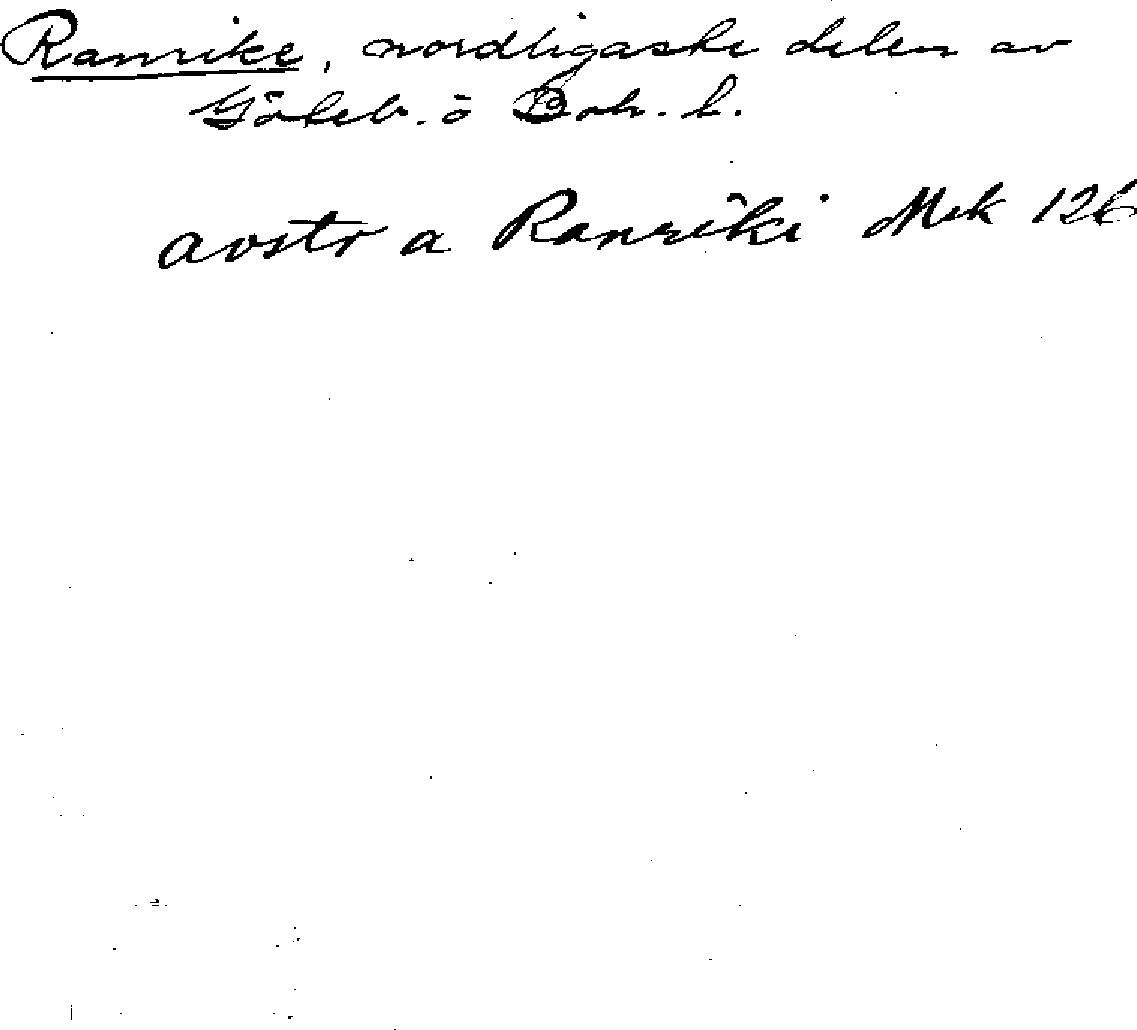 Ranrike, nordligaste delen av
Göteb. o Boh. l.
avstr a Ranríki Msk 126